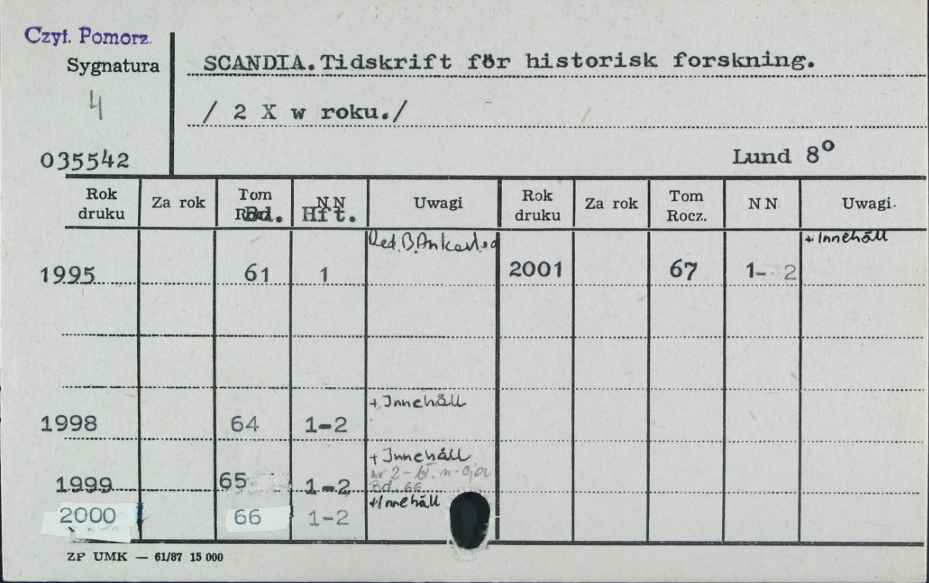 Czyt. Pomorz.
Sygnatura
4
035542
SCANDIA. Tidskrift för historisk forskning.
/ 2 X w roku./
Lund 8°
Rok druku Za rok Tom Bd. NN Hft. Uwagi Rok druku Za rok Tom Rocz. NN Uwagi
Red. B. + Innehåll
1995 61 1 2001 67 1- 2
+ Innehåll
1998 64 1-2
+ Innehåll
nr 2 -
1999 65 1-2 Bd. 66
2000 66 1-2 + Innehåll
ZP UMK — 61/87 15 000